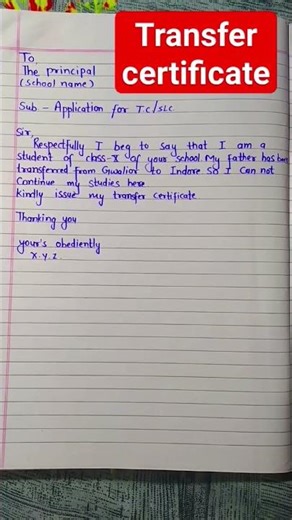 Transfer
certificate
To
The principal
(School name)
Sub - Application for TC/SLC
Sir,
Respectfully I beg to say that I am a
student of class-X of your school. My father has been
transferred from Gwalior to Indore so I can not
Continue my studies here
Kindly issue my transfer certificate
Thanking you
your's obediently
X.Y.Z.